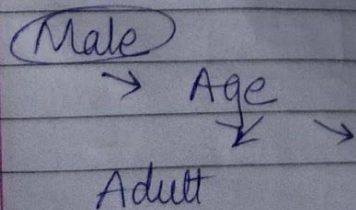 Male
→ Age
Adult